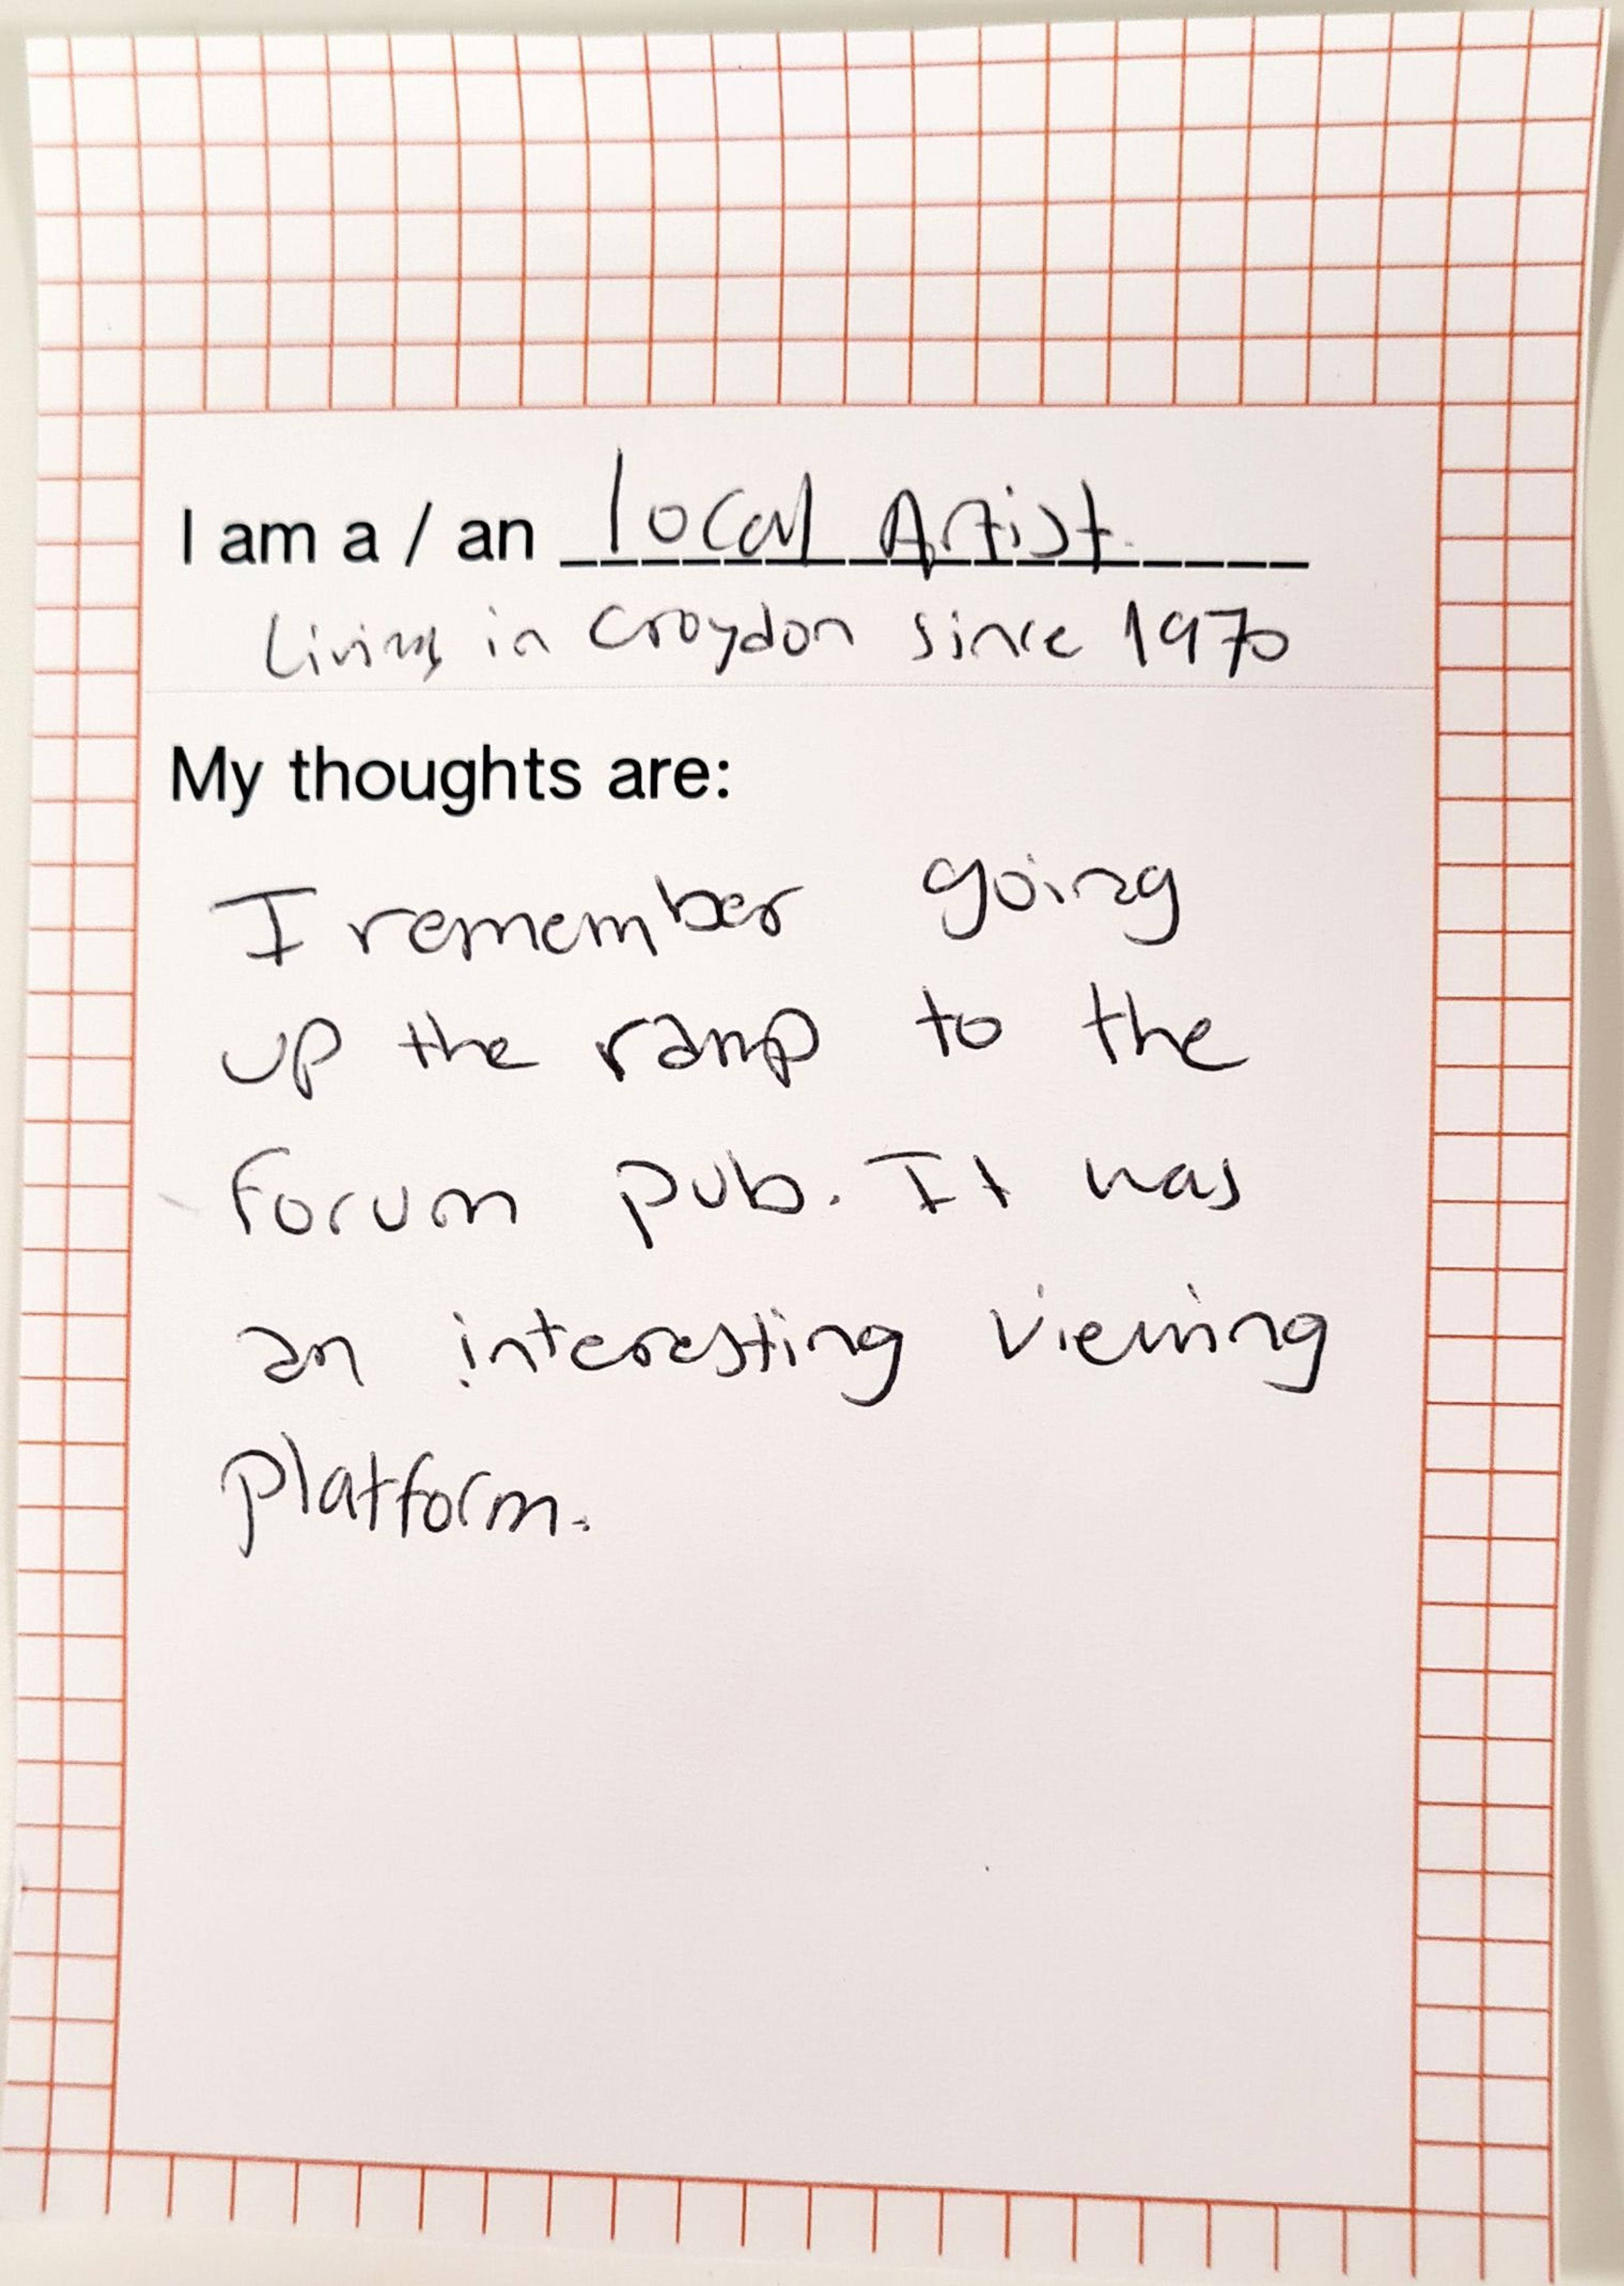 I am a / an local Artist.
Living in Croydon since 1970
My thoughts are:
I remember going
up the ramp to the
forum pub. It was
an interesting viewing
platform.